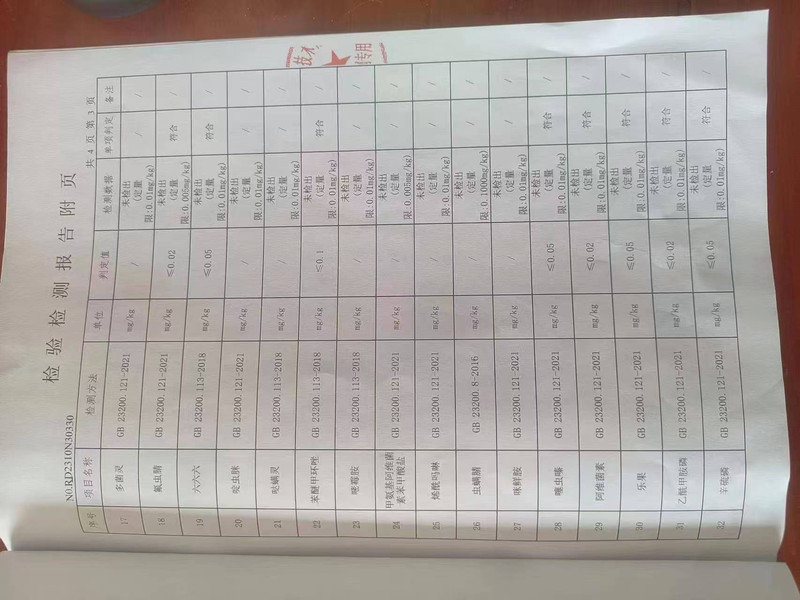 检验检测报告附页
N0.RD2310N30330
共 4 页 第 3 页
序号 项目名称 检测方法 单位 判定值 检测数据 单项判定 备注
17 多菌灵 GB 23200.121-2021 mg/kg / 未检出(定量限:0.01mg/kg) / /
18 氟虫腈 GB 23200.121-2021 mg/kg ≤0.02 未检出(定量限:0.005mg/kg) 符合 /
19 六六六 GB 23200.113-2018 mg/kg ≤0.05 未检出(定量限:0.01mg/kg) 符合 /
20 啶虫脒 GB 23200.121-2021 mg/kg / 未检出(定量限:0.01mg/kg) / /
21 哒螨灵 GB 23200.113-2018 mg/kg / 未检出(定量限:0.01mg/kg) / /
22 苯醚甲环唑 GB 23200.113-2018 mg/kg ≤0.1 未检出(定量限:0.01mg/kg) 符合 /
23 嘧霉胺 GB 23200.113-2018 mg/kg / 未检出(定量限:0.01mg/kg) / /
24 甲氨基阿维菌素苯甲酸盐 GB 23200.121-2021 mg/kg / 未检出(定量限:0.005mg/kg) / /
25 烯酰吗啉 GB 23200.121-2021 mg/kg / 未检出(定量限:0.01mg/kg) / /
26 虫螨腈 GB 23200.8-2016 mg/kg / 未检出(定量限:0.1000mg/kg) / /
27 咪鲜胺 GB 23200.121-2021 mg/kg / 未检出(定量限:0.01mg/kg) / /
28 噻虫嗪 GB 23200.121-2021 mg/kg ≤0.05 未检出(定量限:0.01mg/kg) 符合 /
29 阿维菌素 GB 23200.121-2021 mg/kg ≤0.02 未检出(定量限:0.01mg/kg) 符合 /
30 乐果 GB 23200.121-2021 mg/kg ≤0.05 未检出(定量限:0.01mg/kg) 符合 /
31 乙酰甲胺磷 GB 23200.121-2021 mg/kg ≤0.02 未检出(定量限:0.01mg/kg) 符合 /
32 辛硫磷 GB 23200.121-2021 mg/kg ≤0.05 未检出(定量限:0.01mg/kg) 符合 /
技术
专用